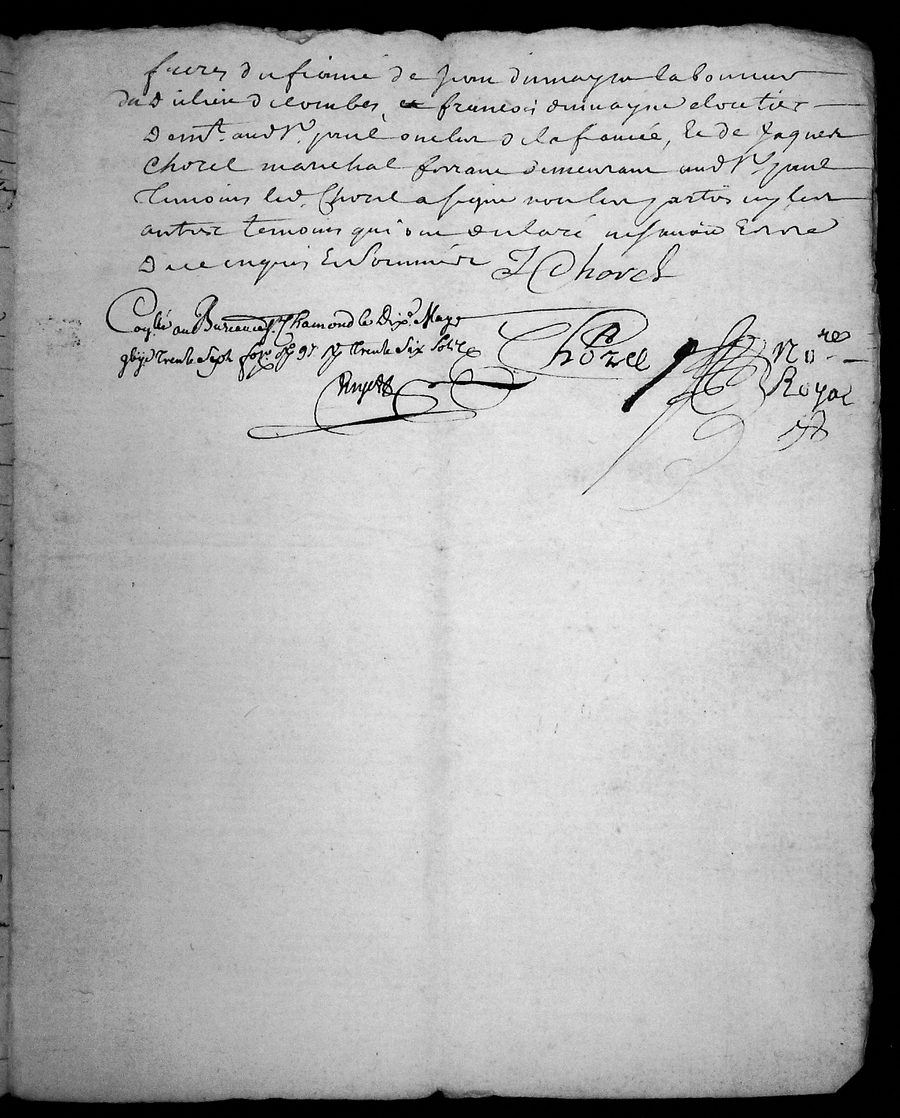 freres du fiancé de Jean dumayne laboureur
du d. lieu de combes, et françois dumayne cloutier
Dem.t aud. S.t paul oncleur de la fiancée, Et de Jaques
Chorel maréchal ferrant Demeurant aud. S.t paul
Temoins led. Chorel a signé non les parties ny les
autres temoins qui ont declaré ne savoir Ecrire
De ce enquis Et Sommés J Chorel
Controllé au Bureau de S.t Chamond le Dix.e May
trente Sept fo. 97 trente Six Sols
Chorel No.re
Royal